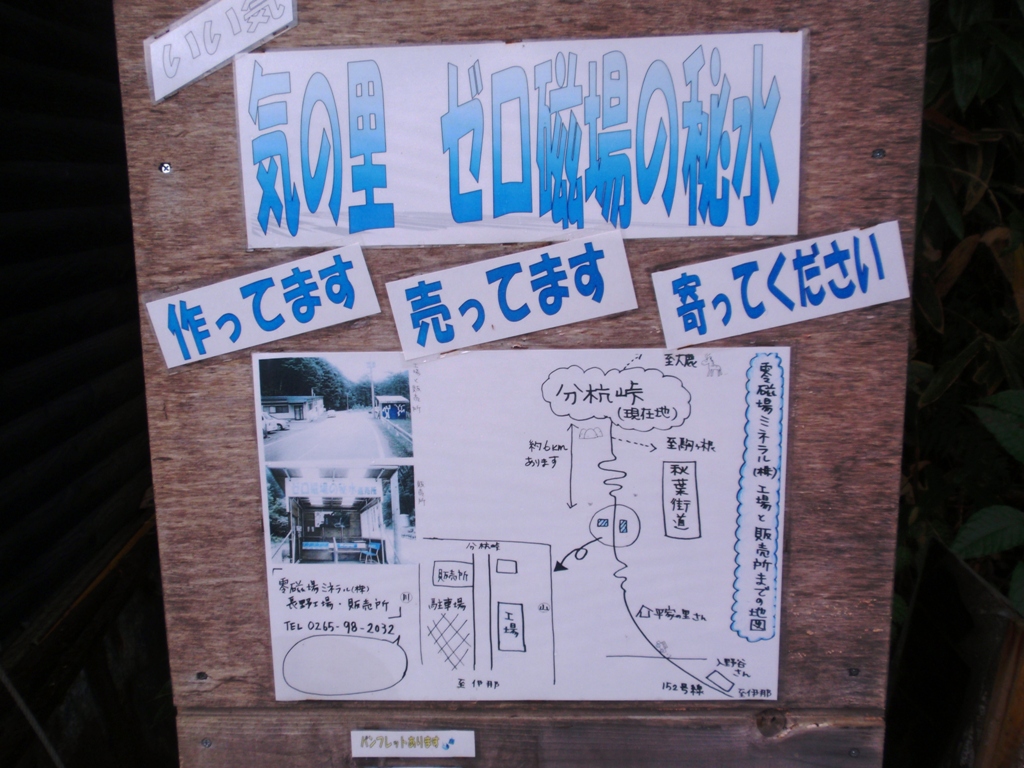 いい気
気の里 ゼロ磁場の秘水
作ってます
売ってます
寄ってください
零磁場ミネラル(株)工場と販売所までの地図
至大鹿
分杭峠
(現在地)
約6km
あります
至駒ヶ根
秋葉街道
平家の里さん
入野谷
さん
152号線
至伊那
分杭峠
販売所
駐車場
工場
山
川
至伊那
「零磁場ミネラル(株)
長野工場・販売所」
TEL 0265-98-2032
パンフレットあります